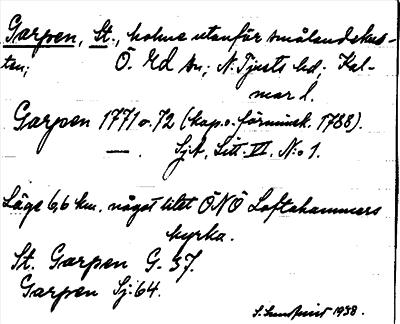 Garpen, St., holme utanför smålandskus-
ten; Ö. Ed sn; N. Tjusts hd; Kal-
mar l.
Garpen 1771 o. 72 (kap. o. förminsk. 1788).
— . Sjk, Litt. VI, N:o 1.
Läge 6,6 km. något litet ÖNÖ Loftahammars
kyrka.
St. Garpen G. 37.
Garpen Sj. 64.
S. Sundqvist 1938.